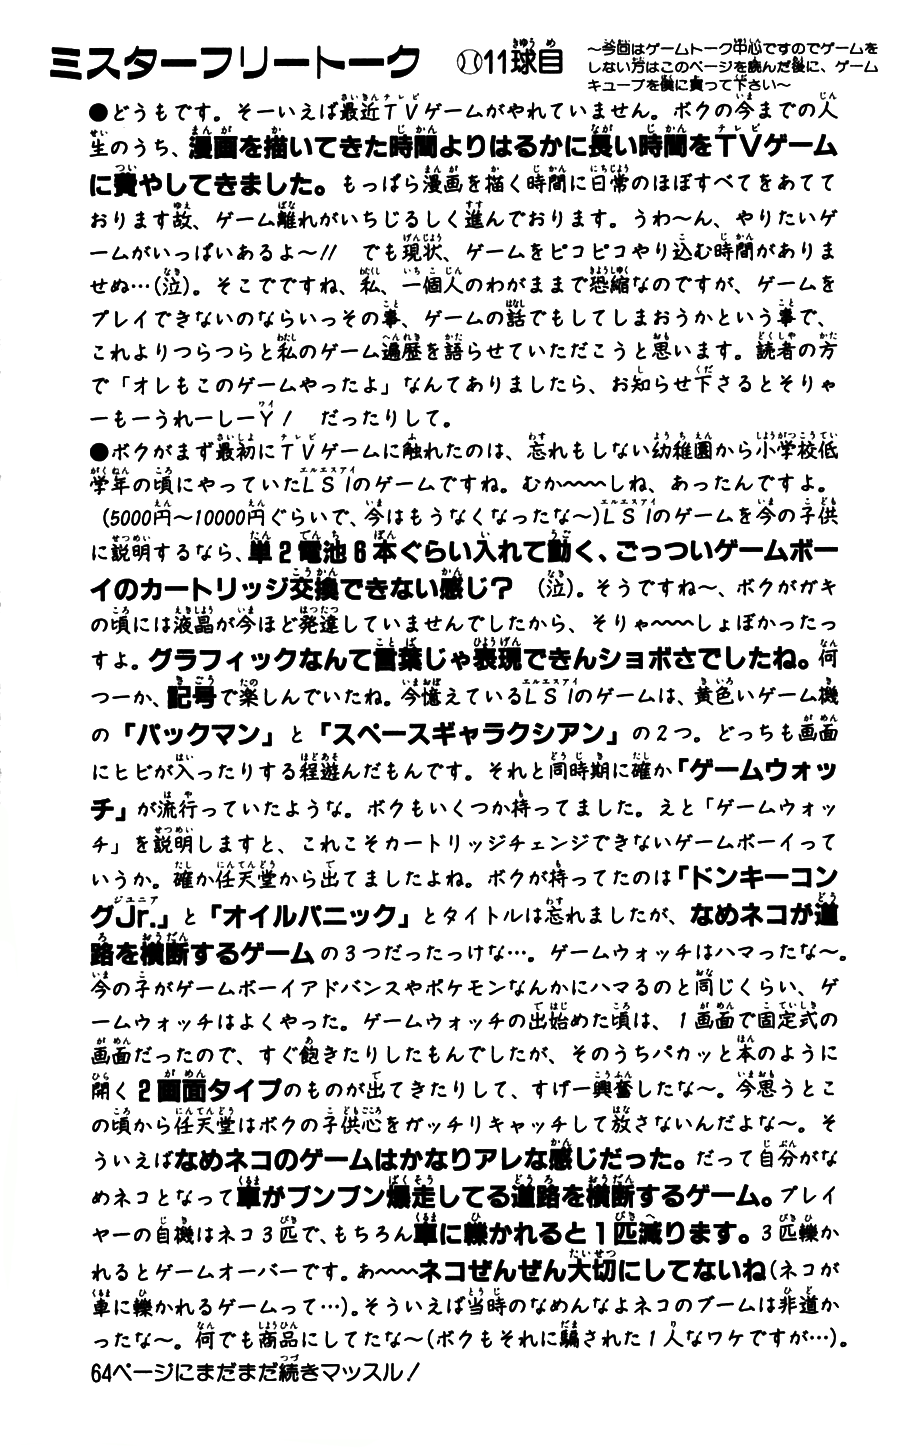 ミスターフリートーク 11球目
～今回はゲームトーク中心ですのでゲームを
しない方はこのページを読んだ後に、ゲーム
キューブを僕に買って下さい～
●どうもです。そーいえば最近TVゲームがやれていません。ボクの今までの人
生のうち、漫画を描いてきた時間よりはるかに長い時間をTVゲーム
に費やしてきました。もっぱら漫画を描く時間に日常のほぼすべてをあてて
おります故、ゲーム離れがいちじるしく進んでおります。うわ～ん、やりたいゲ
ームがいっぱいあるよ～!! でも現状、ゲームをピコピコやり込む時間がありま
せぬ…(泣)。そこでですね、私、一個人のわがままで恐縮なのですが、ゲームを
プレイできないのならいっその事、ゲームの話でもしてしまおうかという事で、
これよりつらつらと私のゲーム遍歴を語らせていただこうと思います。読者の方
で「オレもこのゲームやったよ」なんてありましたら、お知らせ下さるとそりゃ
ーもーうれーしーY! だったりして。
●ボクがまず最初にTVゲームに触れたのは、忘れもしない幼稚園から小学校低
学年の頃にやっていたLSIのゲームですね。むか~~~しね、あったんですよ。
(5000円～10000円ぐらいで、今はもうなくなったな～)LSIのゲームを今の子供
に説明するなら、単2電池6本ぐらい入れて動く、ごっついゲームボー
イのカートリッジ交換できない感じ？ (泣)。そうですね～、ボクがガキ
の頃には液晶が今ほど発達していませんでしたから、そりゃ~~~しょぼかったっ
すよ。グラフィックなんて言葉じゃ表現できんショボさでしたね。何
つーか、記号で楽しんでいたね。今憶えているLSIのゲームは、黄色いゲーム機
の「パックマン」と「スペースギャラクシアン」の2つ。どっちも画面
にヒビが入ったりする程遊んだもんです。それと同時期に確か「ゲームウォッ
チ」が流行っていたような。ボクもいくつか持ってました。えと「ゲームウォッ
チ」を説明しますと、これこそカートリッジチェンジできないゲームボーイって
いうか。確か任天堂から出てましたよね。ボクが持ってたのは「ドンキーコン
グJr.」と「オイルパニック」とタイトルは忘れましたが、なめネコが道
路を横断するゲームの3つだったっけな…。ゲームウォッチはハマったな～。
今の子がゲームボーイアドバンスやポケモンなんかにハマるのと同じくらい、ゲ
ームウォッチはよくやった。ゲームウォッチの出始めた頃は、1画面で固定式の
画面だったので、すぐ飽きたりしたもんでしたが、そのうちパカッと本のように
開く2画面タイプのものが出てきたりして、すげー興奮したな～。今思うとこ
の頃から任天堂はボクの子供心をガッチリキャッチして放さないんだよな～。そ
ういえばなめネコのゲームはかなりアレな感じだった。だって自分がな
めネコとなって車がブンブン爆走してる道路を横断するゲーム。プレイ
ヤーの自機はネコ3匹で、もちろん車に轢かれると1匹減ります。3匹轢か
れるとゲームオーバーです。あ~~~ネコぜんぜん大切にしてないね(ネコが
車に轢かれるゲームって…)。そういえば当時のなめんなよネコのブームは非道か
ったな～。何でも商品にしてたな～(ボクもそれに騙された1人なワケですが…)。
64ページにまだまだ続きマッスル!